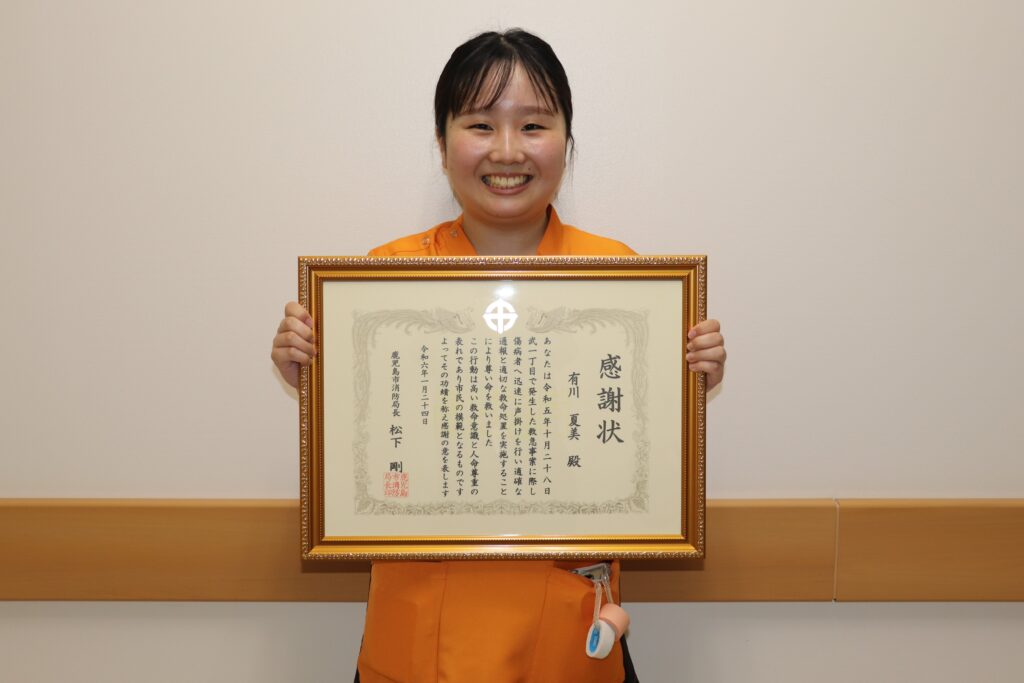 感謝状
有川 夏美 殿
あなたは令和五年十月二十八日
武一丁目で発生した救急事案に際し
傷病者へ迅速に声掛けを行い適確な
通報と適切な救命処置を実施すること
により尊い命を救いました
この行動は高い救命意識と人命尊重の
表れであり市民の模範となるものです
よってその功績を称え感謝の意を表します
令和六年一月二十四日
鹿児島市消防局長 松下 剛
鹿児島
市消防
局長印